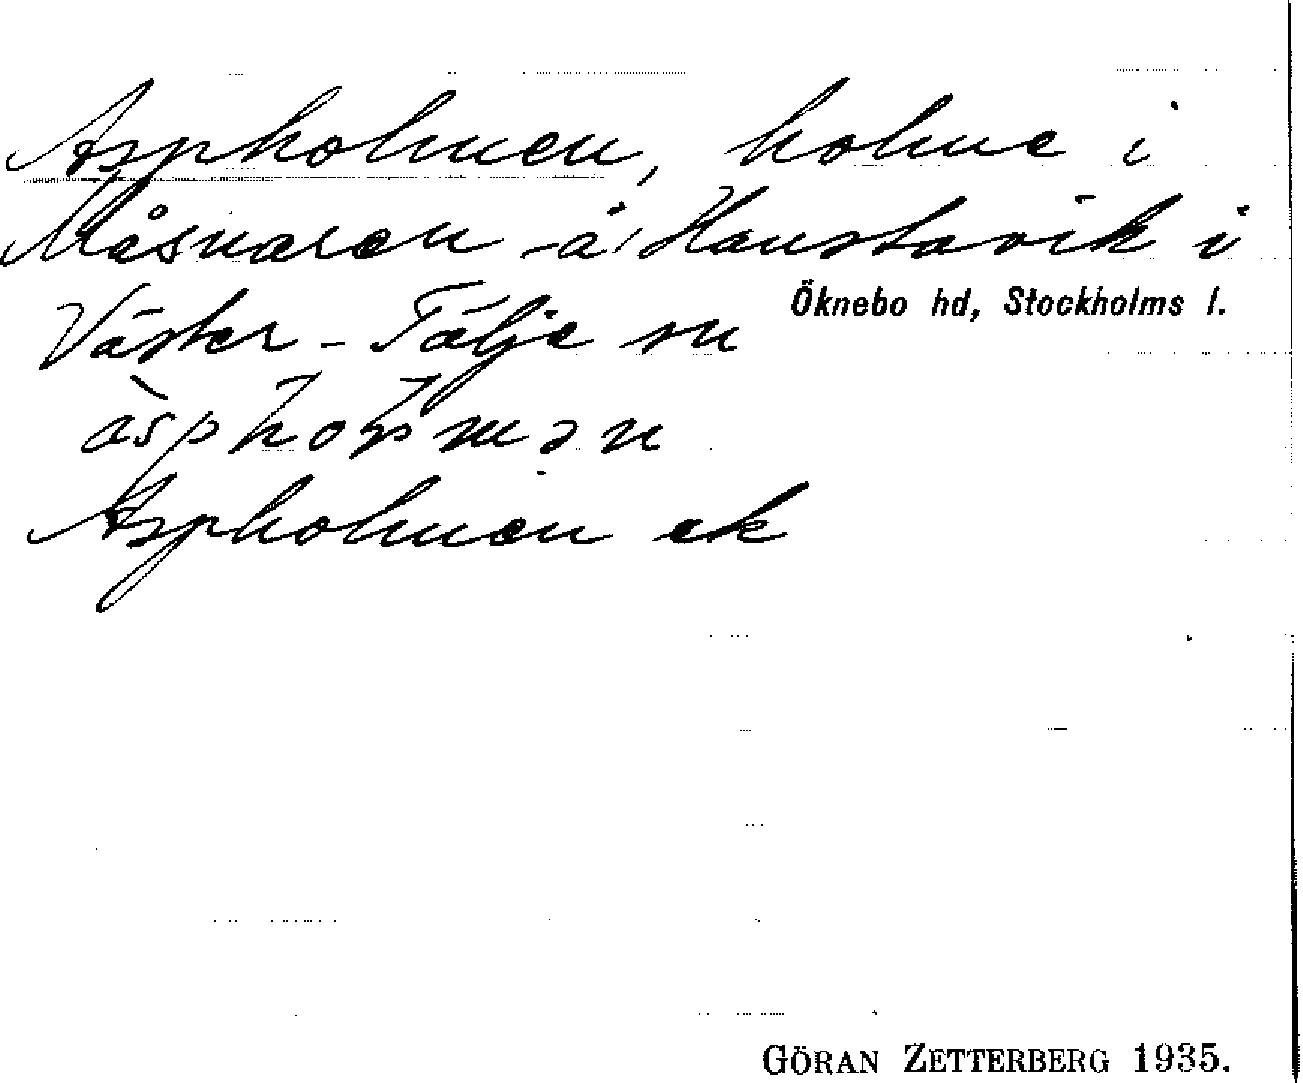 Aspholmen, holme i
Måsnaren å Hanstavik i
Väster-Tälje sn Öknebo hd, Stockholms l.
àspholmən
Aspholmen ek
GÖRAN ZETTERBERG 1935.